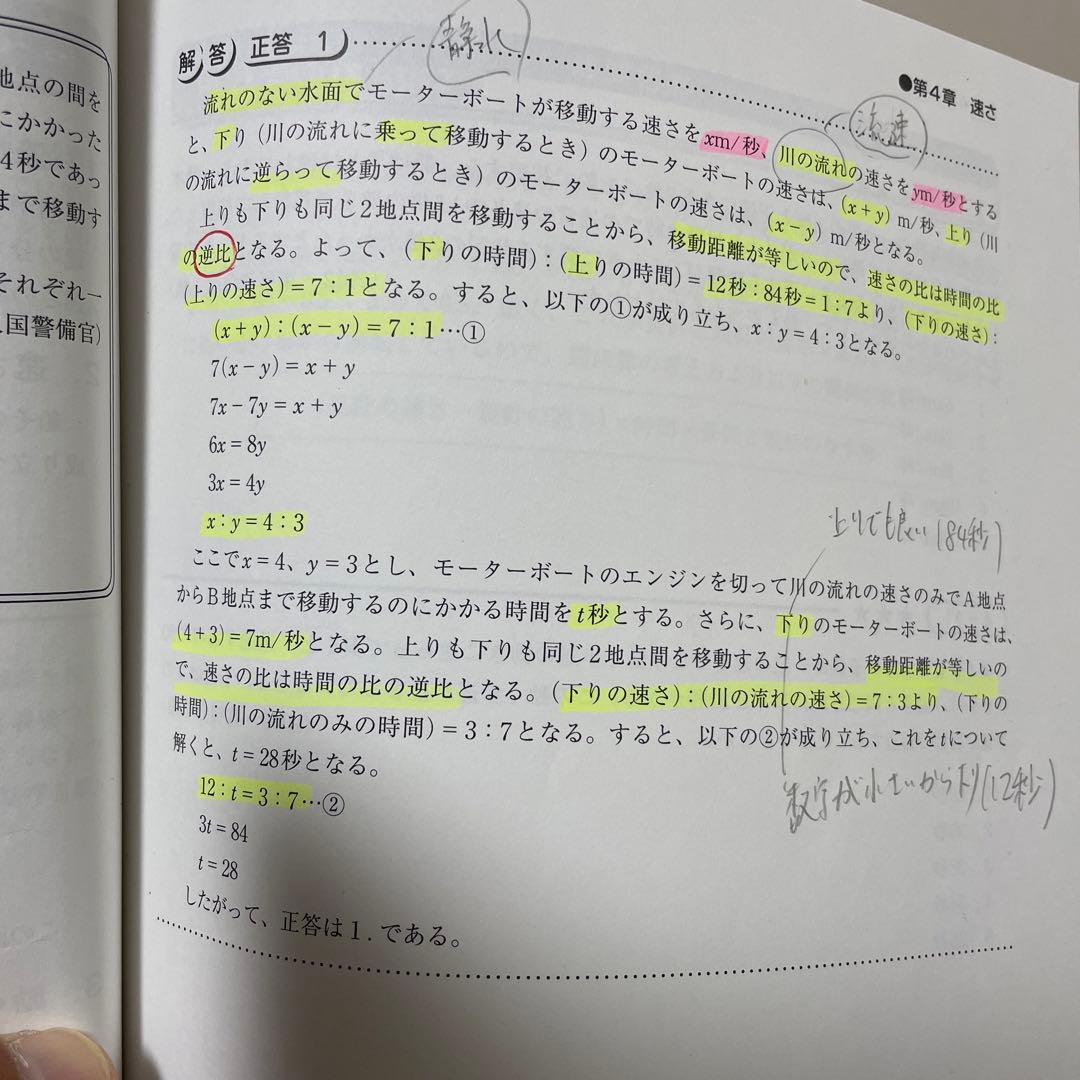 地点の間を
にかかった
4秒であっ
まで移動す
それぞれ一
国警備官)
解答 正答 1
静水
●第4章 速さ
流速
流れのない水面でモーターボートが移動する速さをxm/秒、川の流れの速さをym/秒とする
と、下り(川の流れに乗って移動するとき)のモーターボートの速さは、(x+y)m/秒、上り(川
の流れに逆らって移動するとき)のモーターボートの速さは、(x−y)m/秒となる。
上りも下りも同じ2地点間を移動することから、移動距離が等しいので、速さの比は時間の比
の逆比となる。よって、(下りの時間):(上りの時間)=12秒:84秒=1:7より、(下りの速さ):
(上りの速さ)=7:1となる。すると、以下の①が成り立ち、x:y=4:3となる。
(x+y):(x−y)=7:1…①
7(x−y)=x+y
7x−7y=x+y
6x=8y
3x=4y
x:y=4:3
上りでも良い(84秒)
ここでx=4、y=3とし、モーターボートのエンジンを切って川の流れの速さのみでA地点
からB地点まで移動するのにかかる時間をt秒とする。さらに、下りのモーターボートの速さは、
(4+3)=7m/秒となる。上りも下りも同じ2地点間を移動することから、移動距離が等しいの
で、速さの比は時間の比の逆比となる。(下りの速さ):(川の流れの速さ)=7:3より、(下りの
時間):(川の流れのみの時間)=3:7となる。すると、以下の②が成り立ち、これをtについて
解くと、t=28秒となる。
12:t=3:7…②
数字が小さいから下り(12秒)
3t=84
t=28
したがって、正答は1.である。